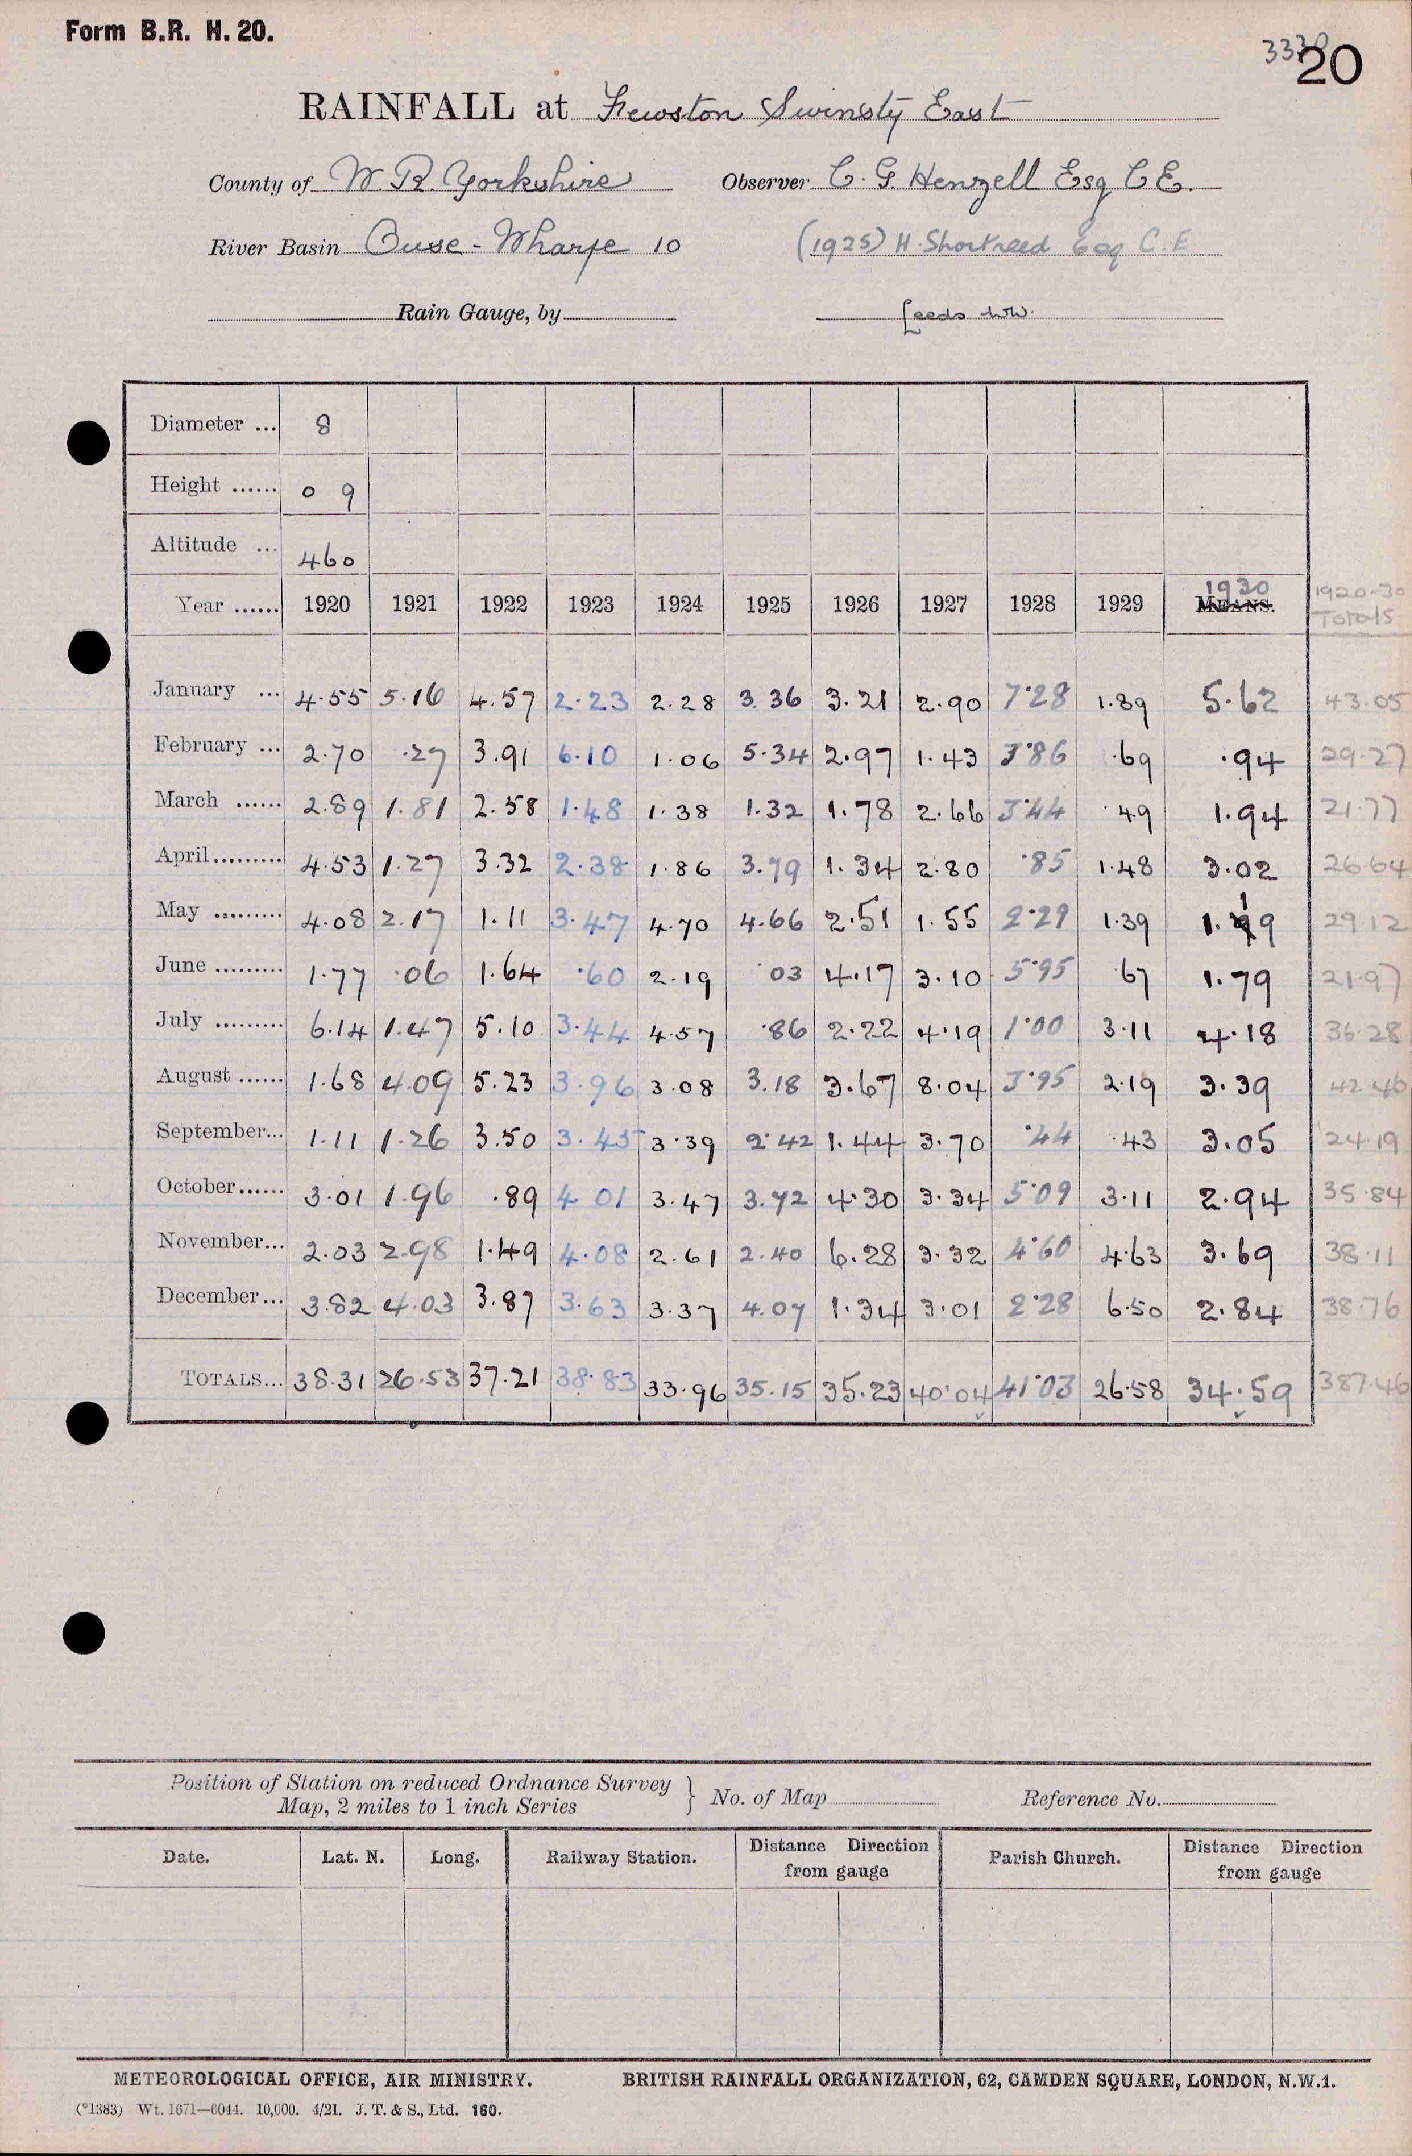 Form B.R. H. 20.
3330 20
RAINFALL at Fewston Swinsty East
County of W R Yorkshire Observer C. G. Henzell Esq C E.
River Basin Ouse - Wharfe 10 (1925) H. Shortreed Esq C. E
Rain Gauge, by Leeds W.W.
Diameter ... 8
Height ...... 0 9
Altitude ... 460
Year ...... 1920 1921 1922 1923 1924 1925 1926 1927 1928 1929 1930 MEANS. 1920-30 Totals
January ... 4.55 5.16 4.57 2.23 2.28 3.36 3.21 2.90 7.28 1.89 5.62 43.05
February ... 2.70 .27 3.91 6.10 1.06 5.34 2.97 1.43 3.86 .69 .94 29.27
March ...... 2.89 1.81 2.58 1.48 1.38 1.32 1.78 2.66 3.44 .49 1.94 21.77
April......... 4.53 1.27 3.32 2.38 1.86 3.79 1.34 2.80 .85 1.48 3.02 26.64
May ......... 4.08 2.17 1.11 3.47 4.70 4.66 2.51 1.55 2.29 1.39 1.19 29.12
June ......... 1.77 .06 1.64 .60 2.19 .03 4.17 3.10 5.95 .67 1.79 21.97
July ......... 6.14 1.47 5.10 3.44 4.57 .86 2.22 4.19 1.00 3.11 4.18 36.28
August ...... 1.68 4.09 5.23 3.96 3.08 3.18 3.67 8.04 3.95 2.19 3.39 42.46
September... 1.11 1.26 3.50 3.45 3.39 2.42 1.44 3.70 .44 .43 3.05 24.19
October...... 3.01 1.96 .89 4.01 3.47 3.72 4.30 3.34 5.09 3.11 2.94 35.84
November... 2.03 2.98 1.49 4.08 2.61 2.40 6.28 3.32 4.60 4.63 3.69 38.11
December... 3.82 4.03 3.87 3.63 3.37 4.07 1.34 3.01 2.28 6.50 2.84 38.76
TOTALS... 38.31 26.53 37.21 38.83 33.96 35.15 35.23 40.04 41.03 26.58 34.59 387.46
Position of Station on reduced Ordnance Survey
Map, 2 miles to 1 inch Series } No. of Map Reference No.
Date. Lat. N. Long. Railway Station. Distance Direction from gauge Parish Church. Distance Direction from gauge
METEOROLOGICAL OFFICE, AIR MINISTRY. BRITISH RAINFALL ORGANIZATION, 62, CAMDEN SQUARE, LONDON, N.W.1.
(*1383) Wt. 1671—6044. 10,000. 4/21. J. T. & S., Ltd. 160.